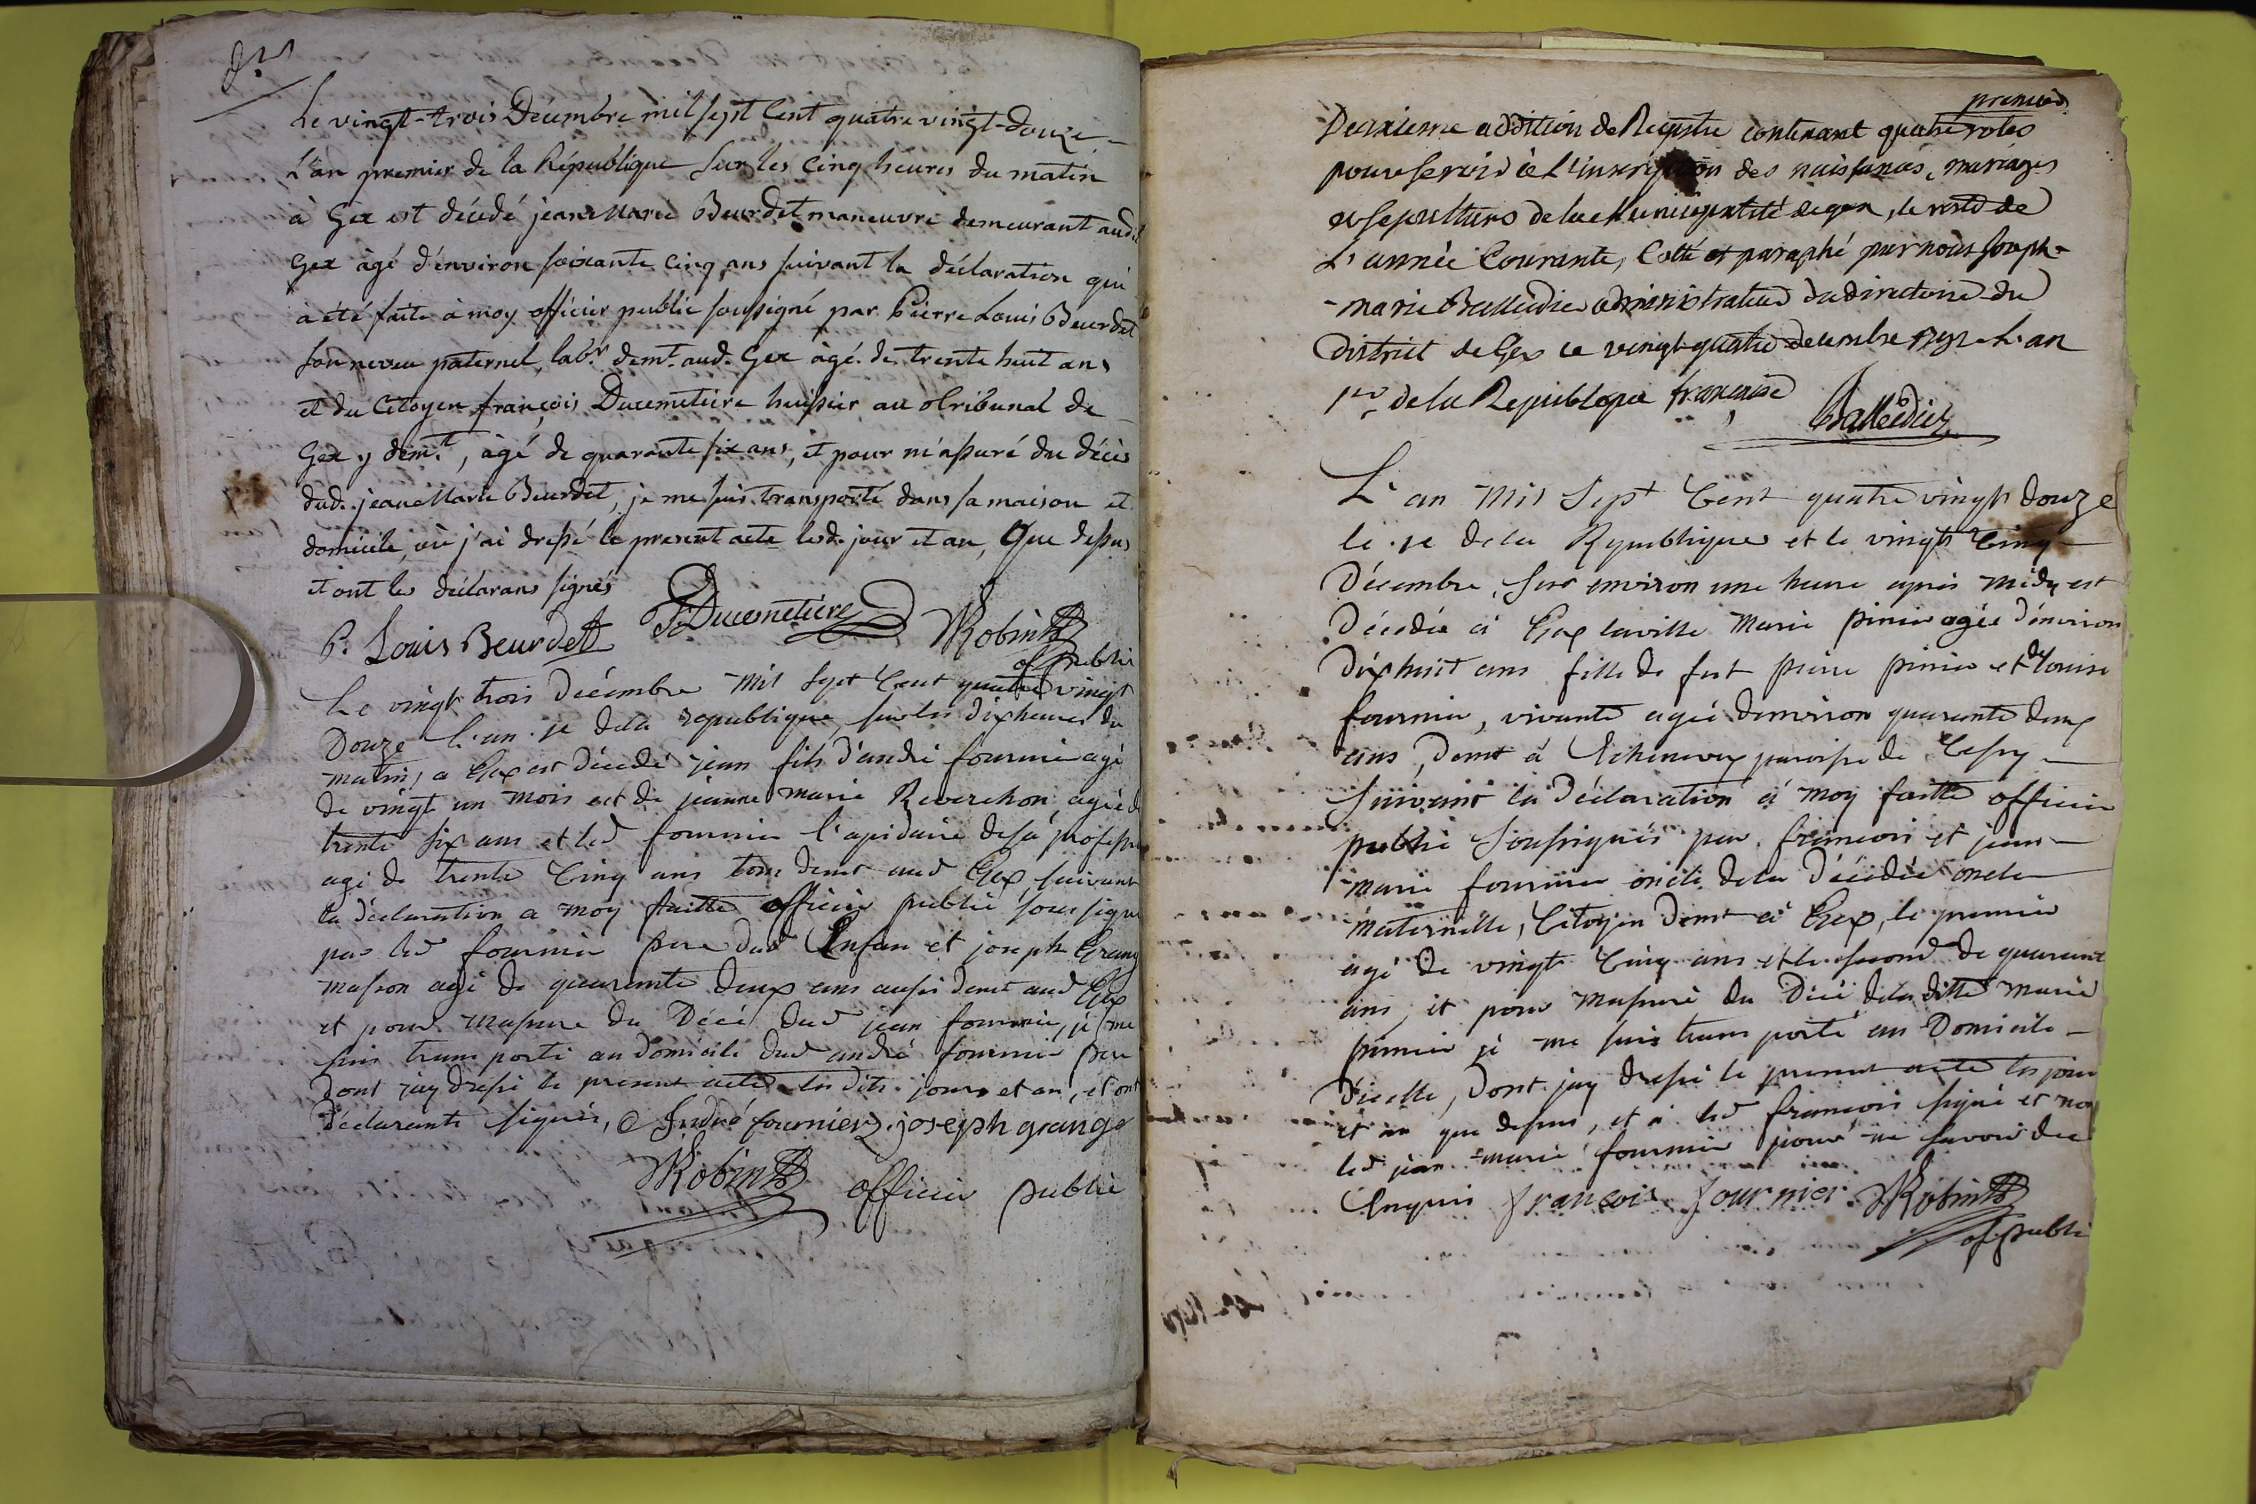 Le vingt-trois Décembre mil sept Cent quatre vingt-douze
L'an premier de la République Sur les Cinq heures du matin
à Gex est décedé jean Marie Beurdet maneuvre demeurant aud.
Gex âgé d'environ soixante cinq ans suivant la déclaration qui
a été faite à moy officier public soussigné par Pierre Louis Beurdet
son neveu paternel, labr. demt. aud. Gex âgé de trente huit ans
et du Citoyen françois Ducemetiere huissier au tribunal de
Gex y demt., âgé de quarante six ans, et pour m'assuré du décès
dud. jean Marie Beurdet, je me suis transporté dans sa maison et
domicile, où j'ai dressé le present acte lesd. jour et an, Que dessus
et ont les déclarans signés
P. Louis Beurdet F. Ducemetiere Robin
of. public
Le vingt trois Décembre mil Sept Cent quatre vingt
Douze l'an 1e dela republique, sur les dix heures du
matin, a Gex est décédé jean fils d'andré fournier agé
de vingt un mois et de jeanne marie Reverchon agée de
trente six ans et led fournier lapidaire de sa profession
agé de trente Cinq ans tous demt aud Gex, suivant
la déclaration a moy faitte officier public soussigné
par led fournier pere dud Enfan et joseph Grange
masson agé de quarante deux ans aussi demt aud Gex
et pour massure du Décé dud jean fournier, je me
suis transporté au domicile dud andré fournier pere
dont jay dressé le present acte les dits jours et an, et ont
déclarants signés, André fournier joseph grange
Robin officier public
premier
Deuxieme addition de Registre contenant quatre roles
pour servir à L'inscription des naissances, mariages
et sepultures de la Municipalité de gex, le reste de
L'année Courante, Cotté et paraphé par nous Joseph-
-marie Balleidier administrateur du directoire du
District de Gex ce vingt-quatre décembre 1792 L'an
1er de la Republique françoise
Balleidier
L'an Mil Sept Cent quatre vingt douze
le 1e dela Republique et le vingt Cinq
Décembre, sur environ une heure apres midy est
Décédée à Gex laville Marie pinier agée d'environ
dixhuit ans fille de fut pierre pinier et de louise
fournier, vivante agée denviron quarante deux
ans, demt à Echenevex paroisse de Cessy
Suivant la Déclaration à moy faitte officier
public Soussignés par francois et jean
marie fournier oncle dela Décédée oncle
maternelle, Citoyen demt à Gex, le premier
agé de vingt Cinq ans et le second de quarante
ans, et pour massuré du Décé deladitte marie
pinier je me suis transporté au Domicile
d'icelle, Dont jay dressé le present acte les jour
et an que dessus, et a led francois signé et non
led jean marie fournier pour ne savoir de
Enquis francois fournier Robin
of public